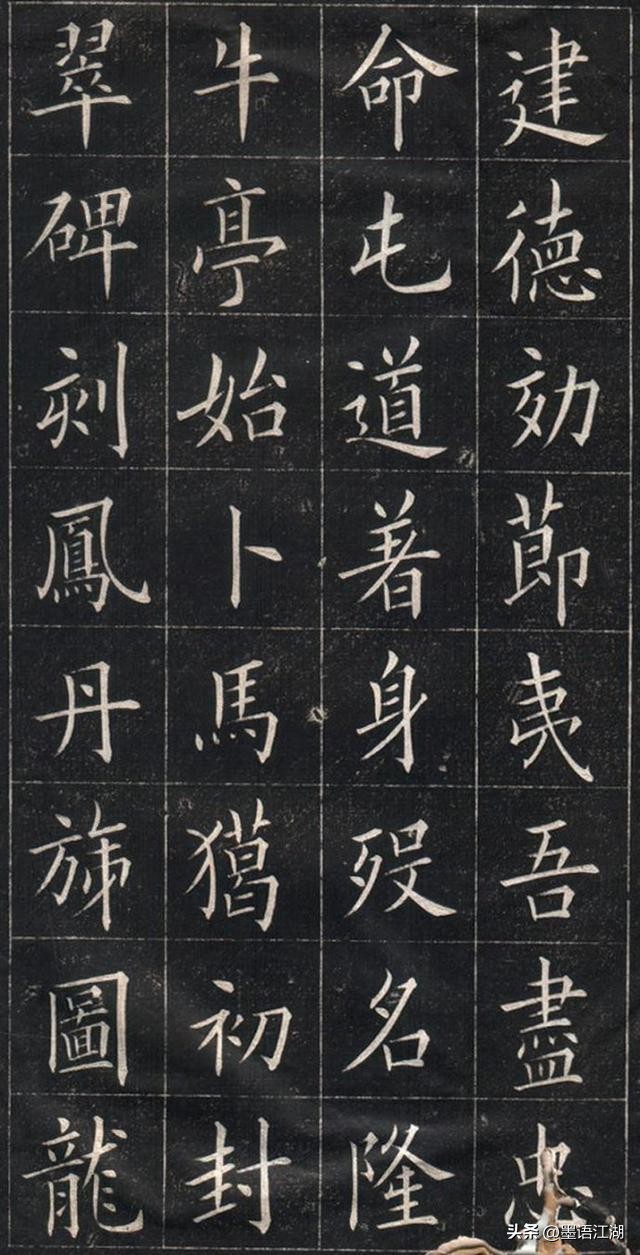 建德効莭夷吾盡忠
命屯道著身殁名隆
牛亭始卜馬獦初封
翠碑刻鳳丹旆圖龍
头条 @墨语江湖